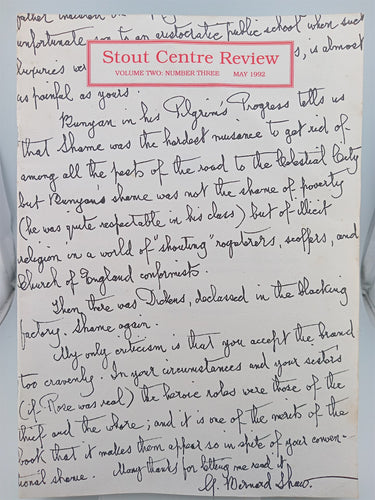 gather
unfortunate son to an aristocratic public school when such
Stout Centre Review
VOLUME TWO: NUMBER THREE MAY 1992
luxuries wer s, is almost
as painful as yours.
Bunyan in his Pilgrim's Progress tells us
that Shame was the hardest nuisance to get rid of
among all the pests of the road to the Celestial City
but Bunyan's shame was not the shame of poverty
(he was quite respectable in his class) but of illicit
religion in a world of "shouting" roysterers, scoffers, and
Church of England conformists.
Then there was Dickens, declassed in the blacking
factory. Shame again.
My only criticism is that you accept the brand
too cravenly. In your circumstances and your sister's
(if Rose was real) the heroic roles were those of the
thief and the whore; and it is one of the merits of the
book that it makes them appear so in spite of your conven-
tional shame. Many thanks for letting me read it.
G. Bernard Shaw.